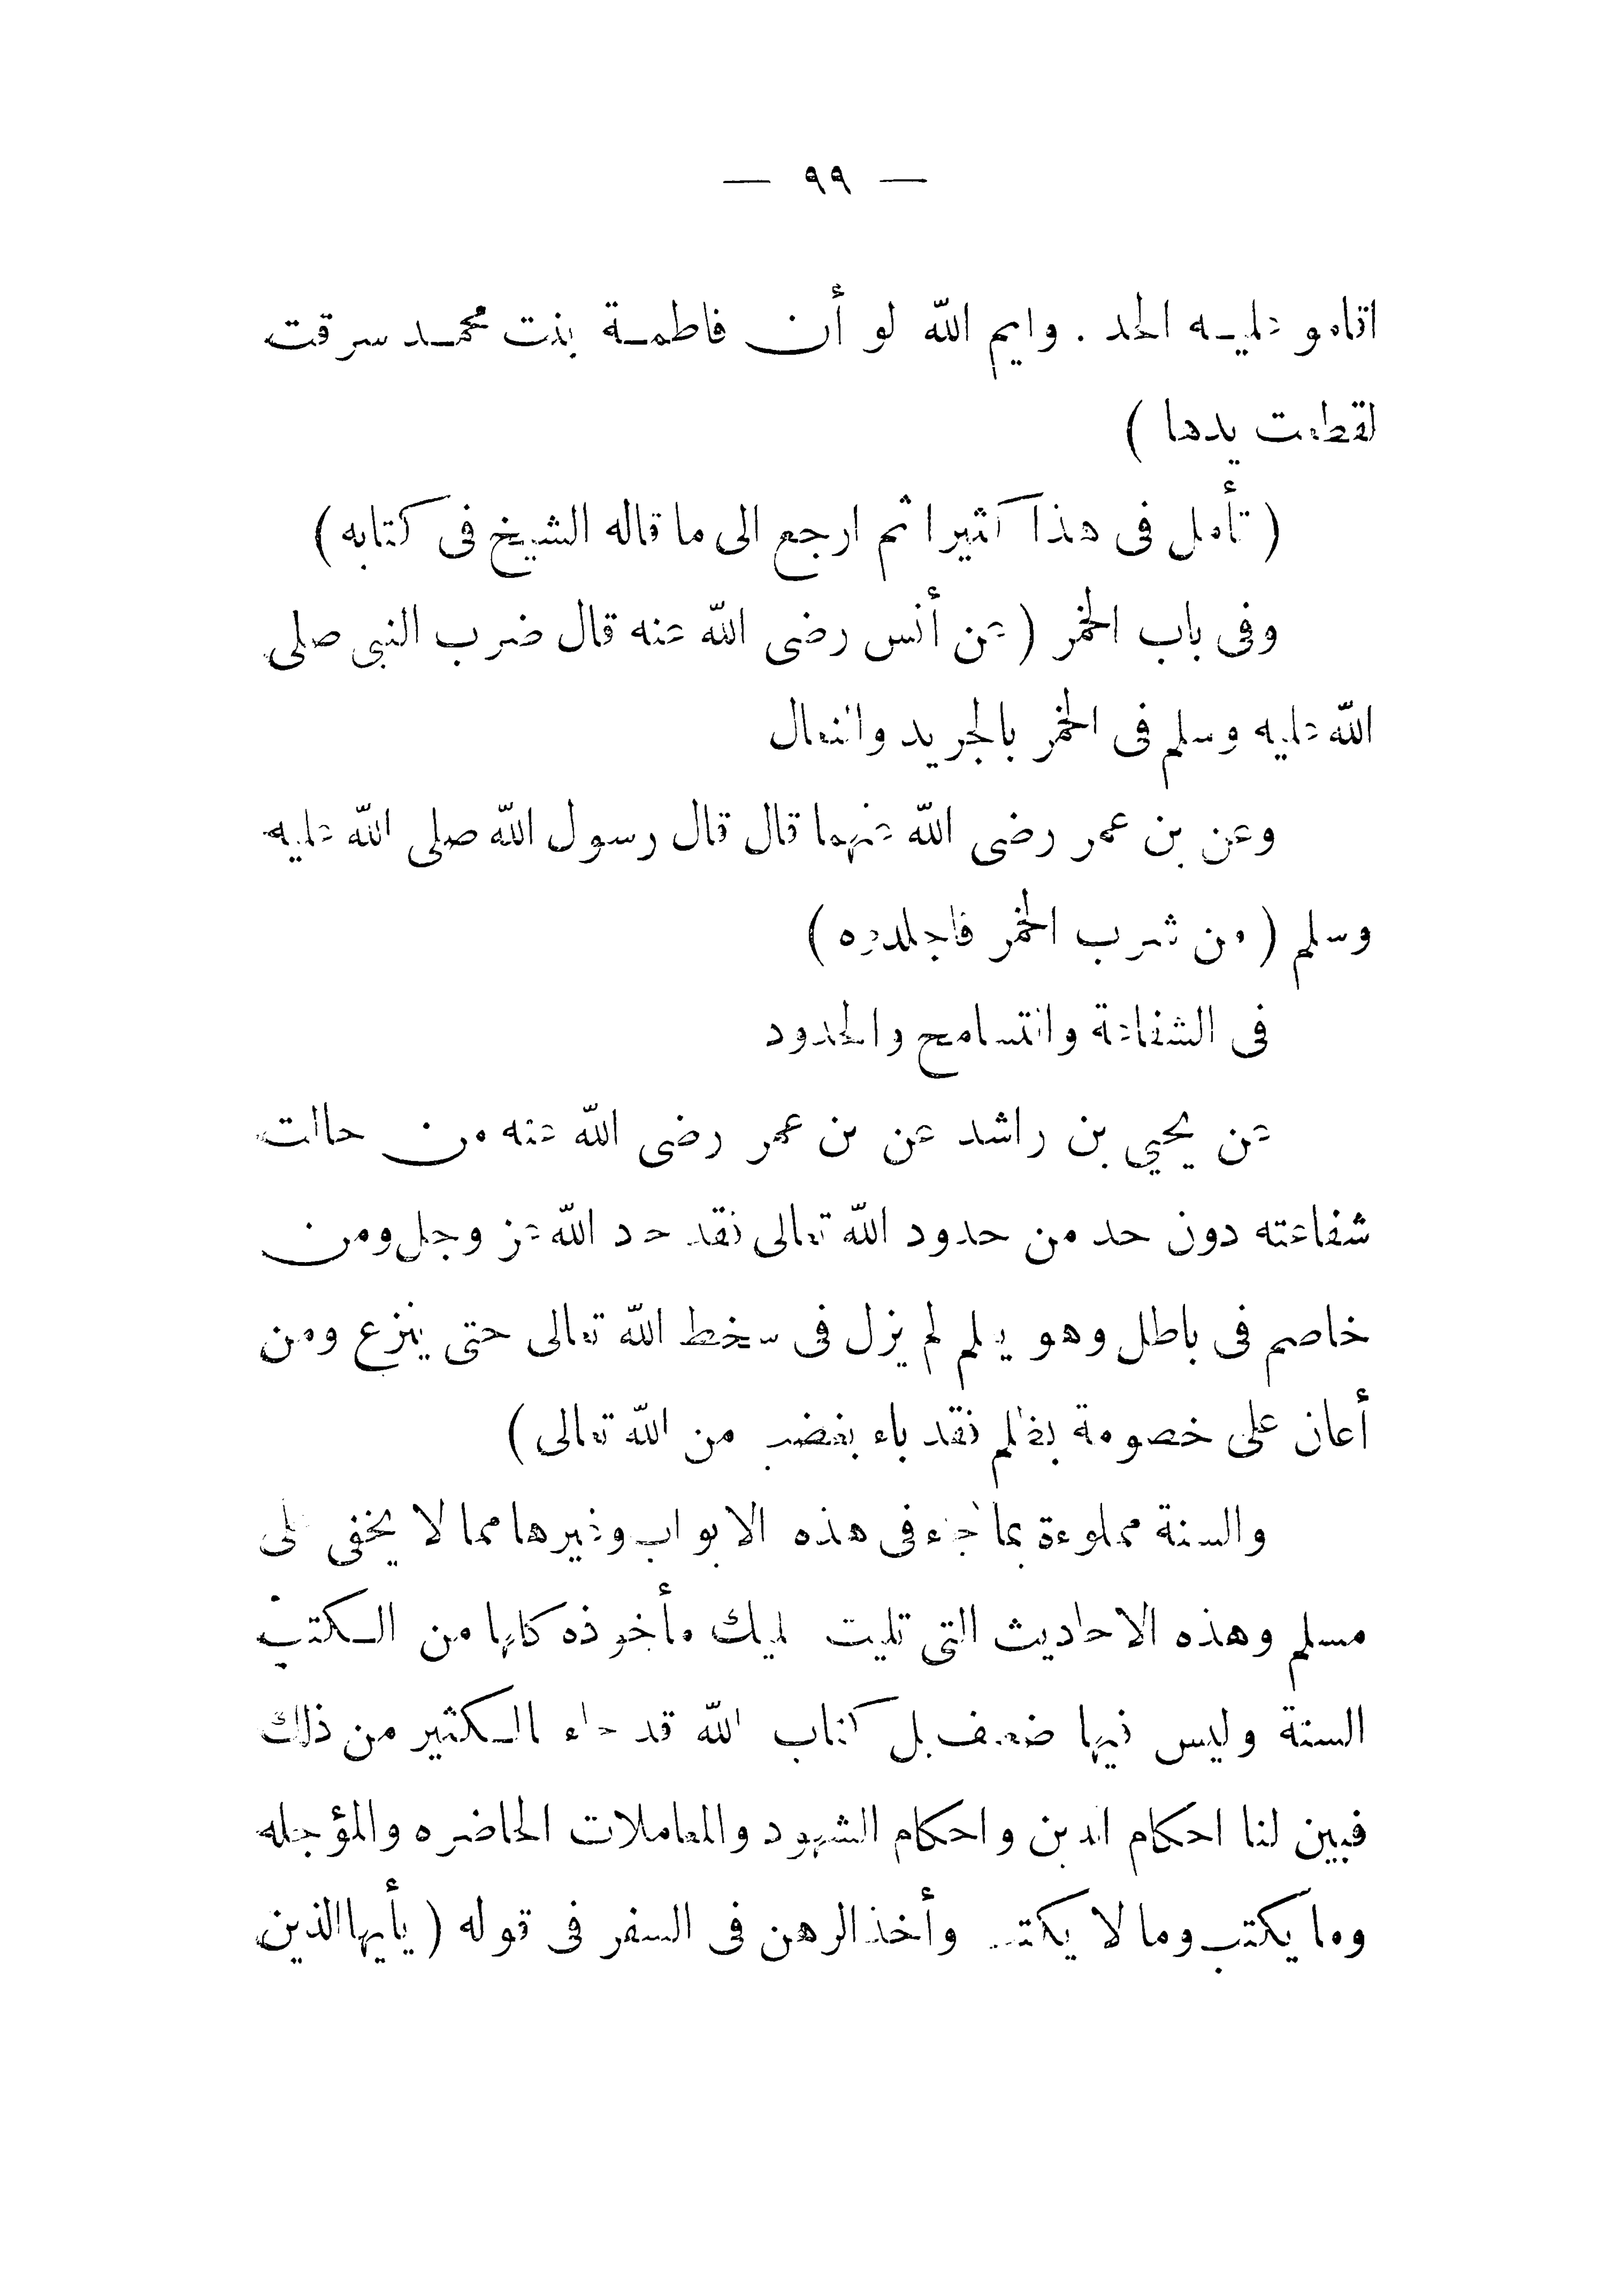 — ٩٩ —
اقاموا عليه الحد . وايم الله لو أن فاطمة بنت محمد سرقت
لقطعت يدها )
( تأمل فى هذا كثيرا ثم ارجع الى ما قاله الشيخ فى كتابه )
وفى باب الخمر ( عن أنس رضى الله عنه قال ضرب النبى صلى
الله عليه وسلم فى الخمر بالجريد والنعال
وعن بن عمر رضى الله عنهما قال قال رسول الله صلى الله عليه
وسلم ( من شرب الخمر فاجلدوه )
فى الشفاعة والتسامح والحدود
عن يحيي بن راشد عن بن عمر رضى الله عنه من حالت
شفاعته دون حد من حدود الله تعالى فقد حد الله عز وجل ومن
خاصم فى باطل وهو يعلم لم يزل فى سخط الله تعالى حتى ينزع ومن
أعان على خصومة بظلم فقد باء بغضب من الله تعالى )
والسنة مملوءة بما جاء فى هذه الابواب وغيرها مما لا يخفى على
مسلم وهذه الاحاديث التى تليت عليك مأخوذه كلها من الكتب
السنة وليس فيها ضعيف بل كتاب الله قد جاء بالكثير من ذلك
فبين لنا احكام الدين واحكام الشهود والمعاملات الحاضره والمؤجله
وما يكتب وما لا يكتب وأخذ الرهن فى السفر فى قوله ( يأيها الذين